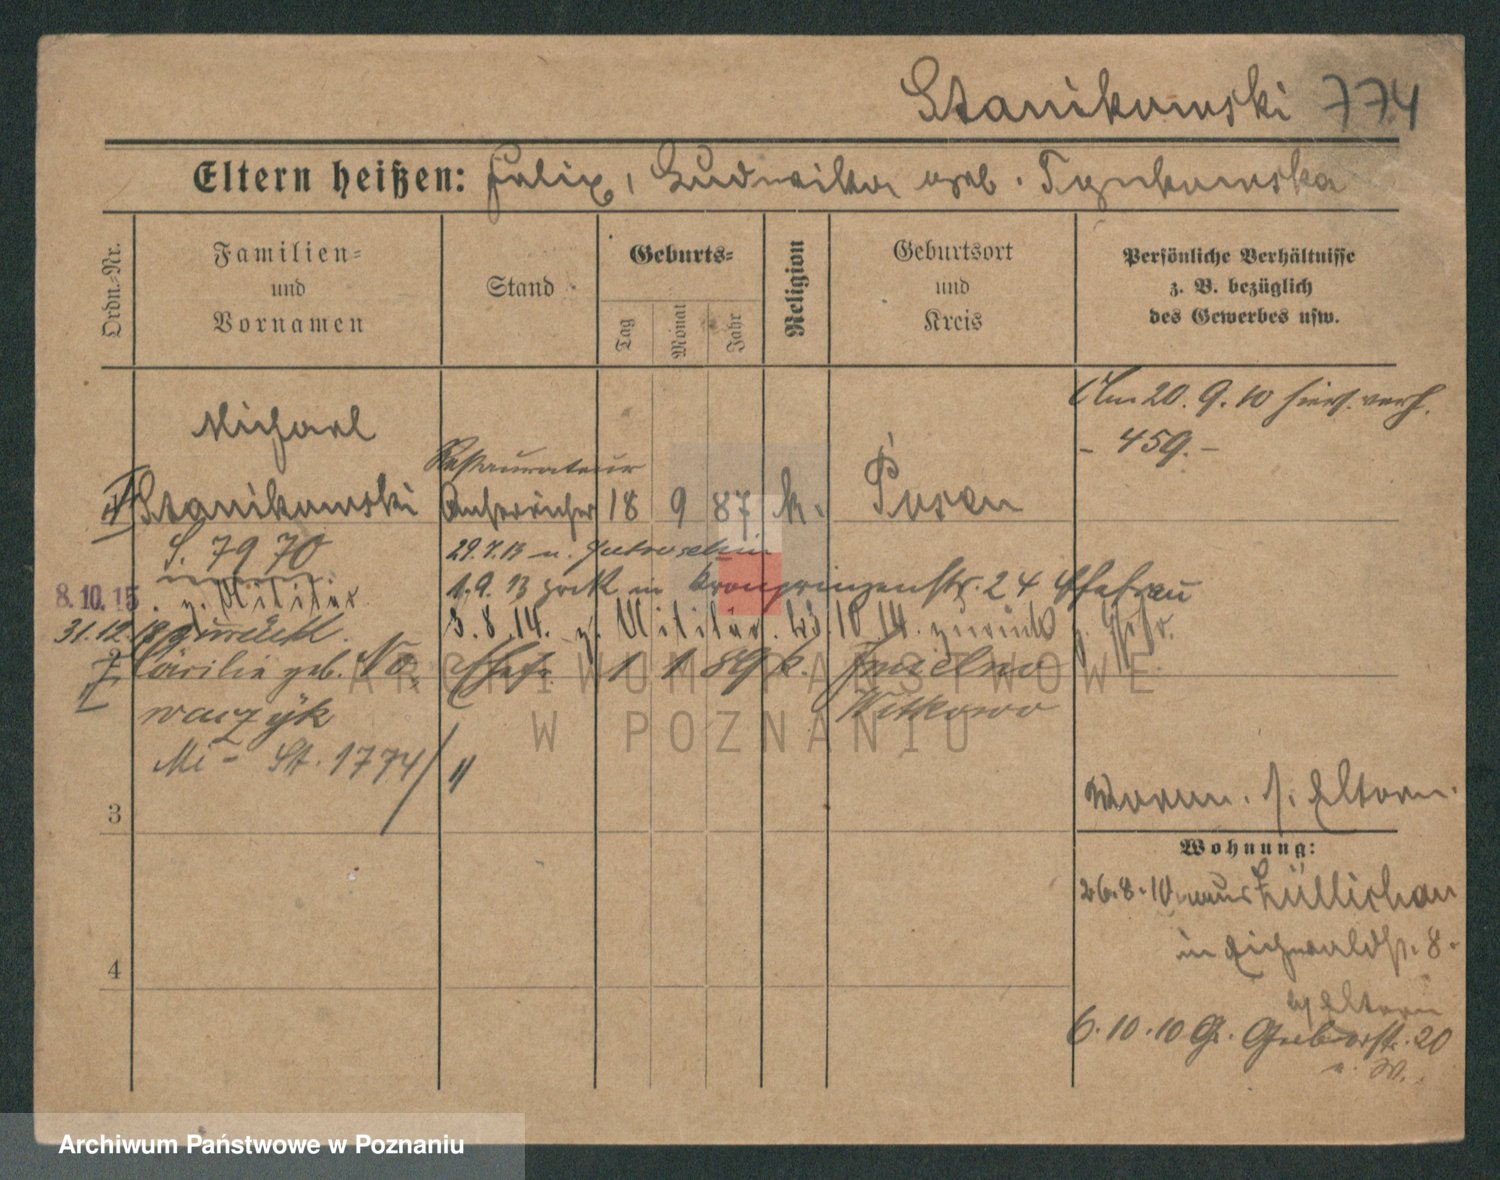 Stanikowski 774
Eltern heißen: Felix, Ludwika geb. Tynkowska
Ordn.-Nr.
Familien=
und
Vornamen
Stand
Geburts=
Tag
Monat
Jahr
Religion
Geburtsort
und
Kreis
Persönliche Verhältnisse
z. B. bezüglich
des Gewerbes usw.
Am 20. 9. 10 hier verh.
- 459. -
Michael
Restaurateur
Stanikowski
18 9 87 k. Posen
S. 7970
29.7.13 n. Jutroschin
1.9.13 zrck in Kronprinzenstr. 24
8.10.15. z. Militär
3.8.14. z. Militär. 23.10.14. zurück
31.12.18 zurück.
2 Cäcilie geb. No-
waczyk
Ehefr. 1 1 89 k. Imielno
Witkowo
Mi - St. 1774/11
3
4
Worm. s. Eltern.
Wohnung:
26.8.10 aus Züllichau
in Eichwaldstr. 8.
b/ Eltern
6.10.10 Gr. Gerberstr. 20
ARCHIWUM PAŃSTWOWE
W POZNANIU
Archiwum Państwowe w Poznaniu